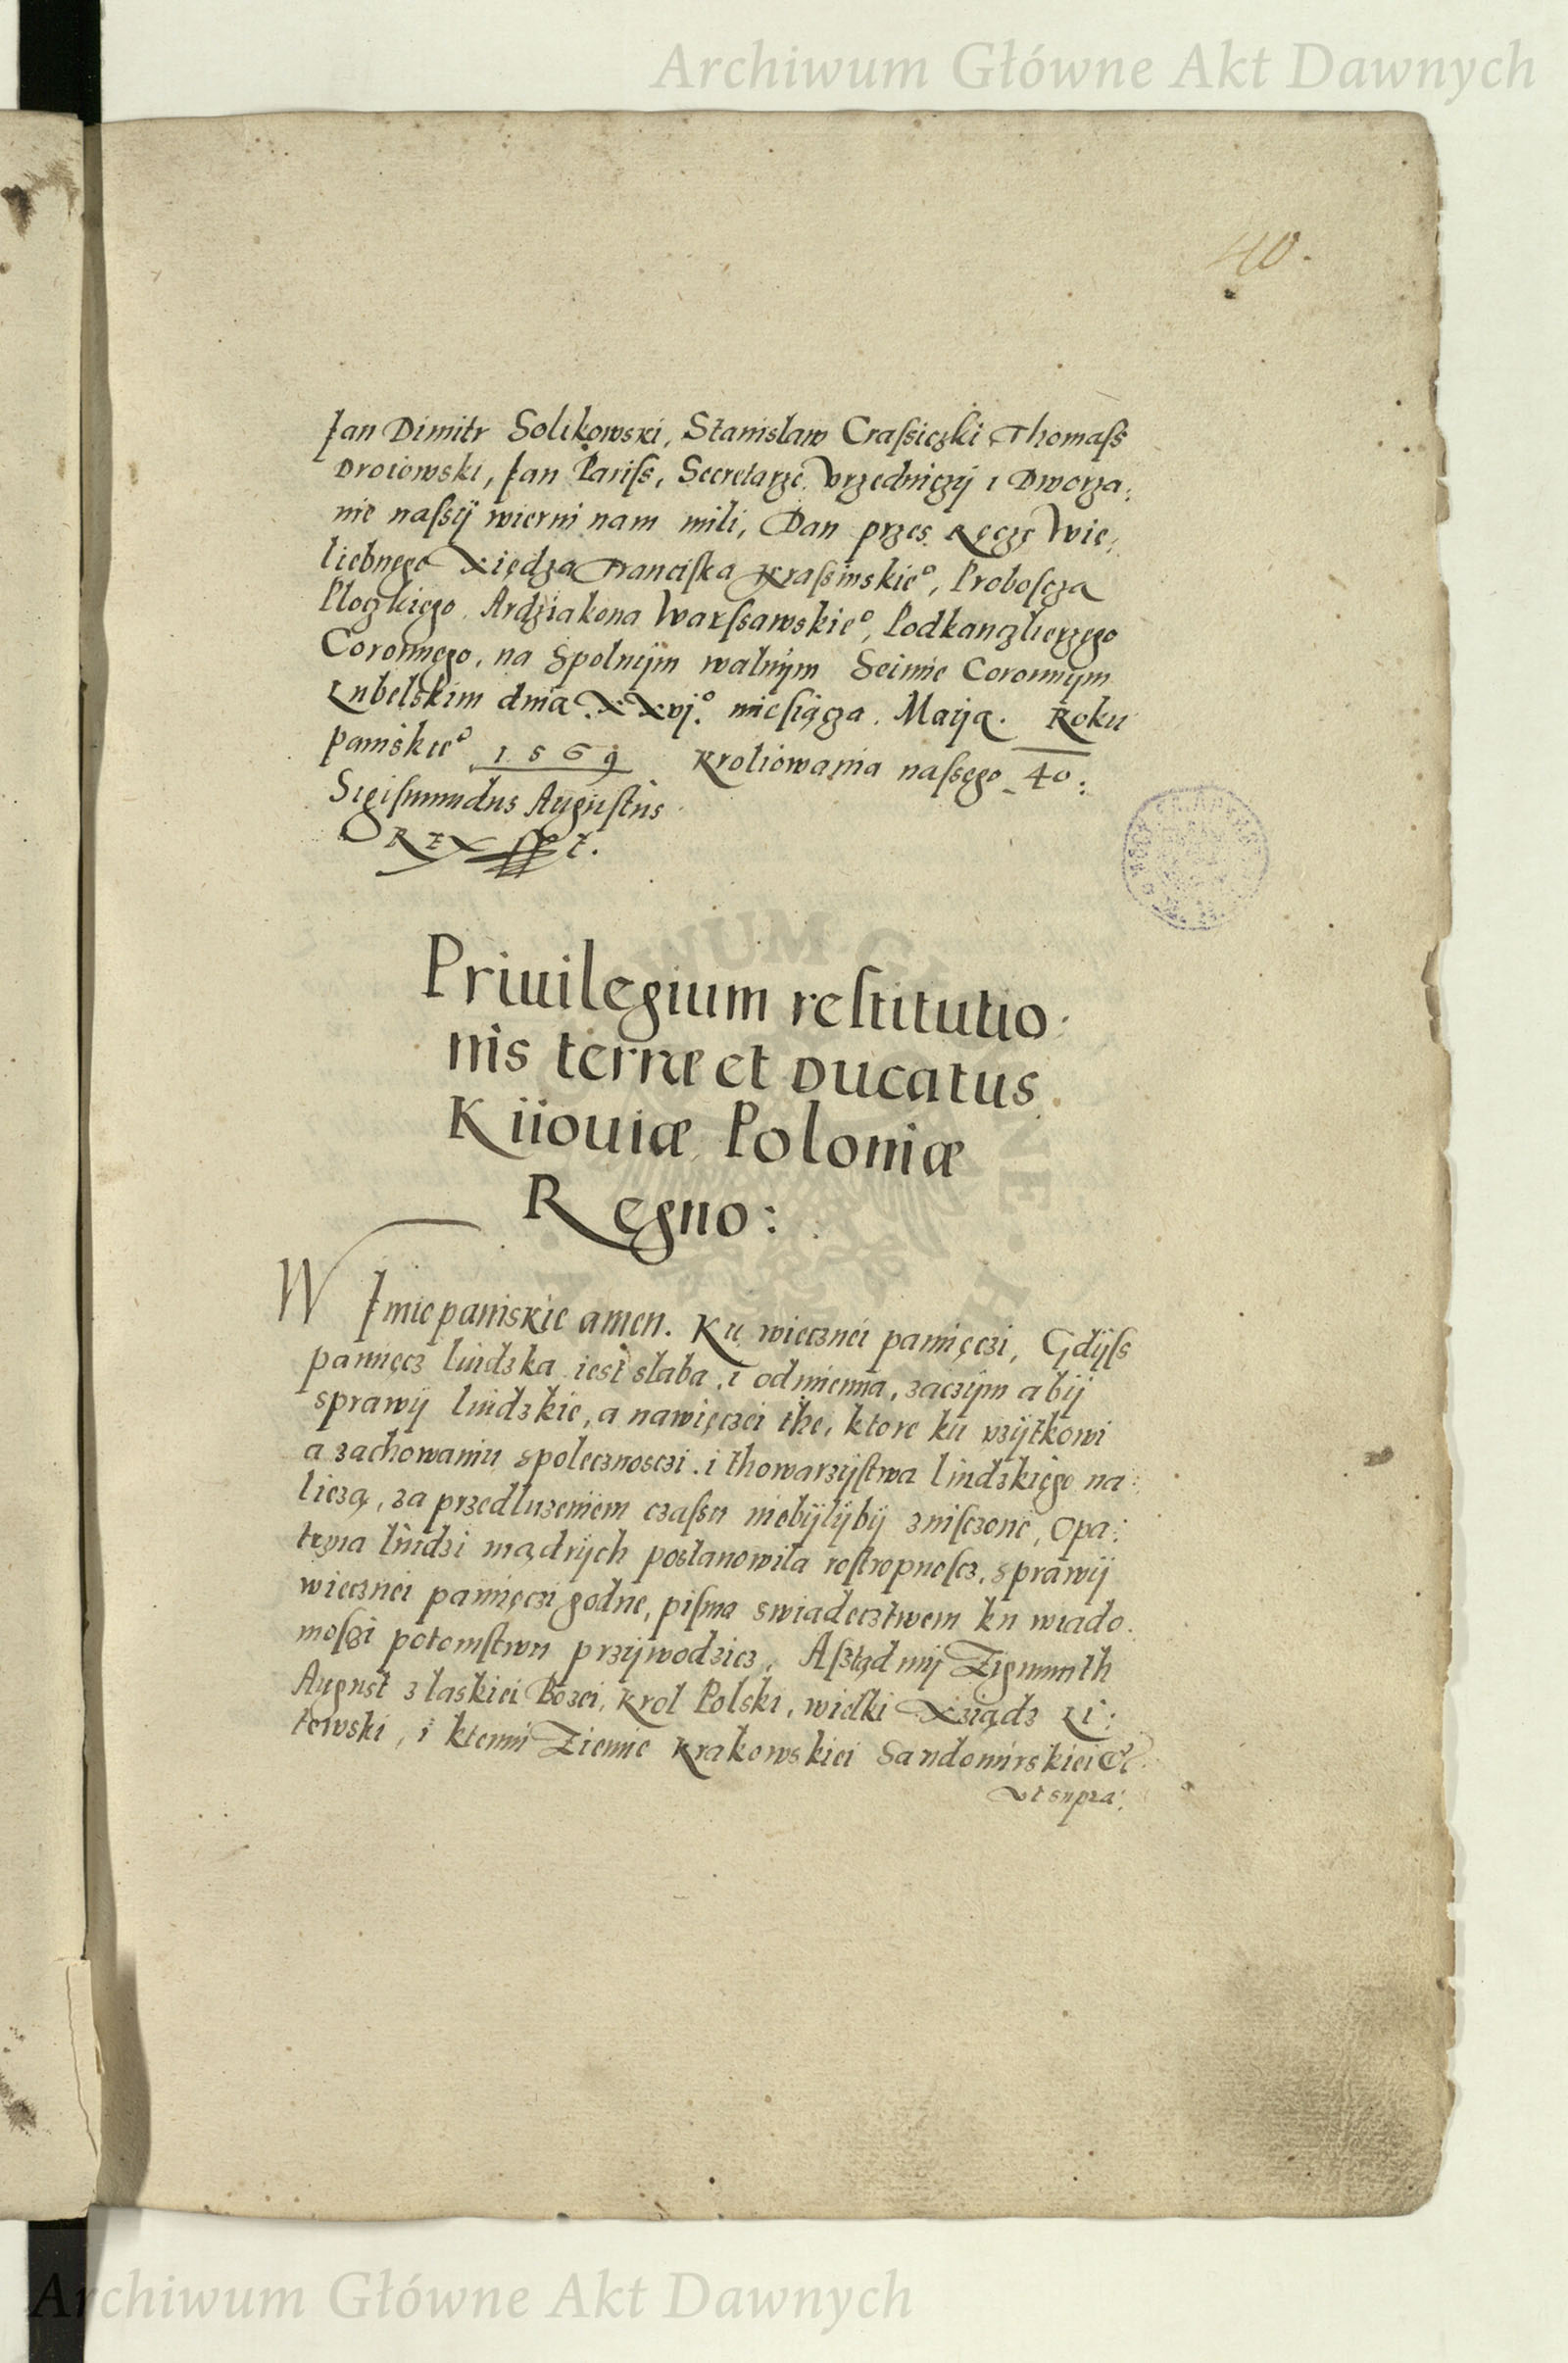 Archiwum Główne Akt Dawnych
40.
Jan Dimitr Solikowski, Stanislaw Craſsiczki Thomaſs
Droiowski, Jan Pariſs, Secretarze Vrzedniczÿ i Dworza:
nie naſsÿ wierni nam mili, Dan przes Ręczę Wie:
liebnego Xiędza Franciſka Kraſsinskie°, Proboſcza
Ploczkięgo Ardziakona Warſsawskie°, Podkanczlierzego
Coronnego, na Spolnÿm walnÿm Seimie Coronnÿm
Lubelskim dnia XXvj° mieſiącza Maÿa. Roku
pańskie° 1569 Kroliowania naſsęgo 40:
Sigiſmundus Auguſtus
REX ſſt.
Priuilegium reſtitutio:
nis terræ et Ducatus
Kiiouiæ Poloniæ
Regno:
W Jmie panskie amen. Ku wiecznei pamięczi, Gdÿſs
pamięcz liudzka iest slaba i odmienna, zaczÿm abÿ
sprawÿ liudzkie, a nawięczei the, ktore ku vzÿtkowi
a zachowaniu spolecznosczi i thowarzÿſtwa liudzkięgo na:
liczą, za przedluzeniem czaſsu niebÿlÿbÿ zniſczone, Opa:
trzna liudzi mądrÿch postanowila roſtropnoſcz, sprawÿ
wiecznei pamięczi godne, piſma swiadecztwem ku wiado
moſczi potomſtwu przÿwodzicz, Aſztąd mÿ Zigmunth
August z laskiei Bozei, Krol Polski, wielki Xziądz Li:
tewski, i ktemu Ziemie Krakowskiei Sandomirskiei &c
vt supra:
Archiwum Główne Akt Dawnych